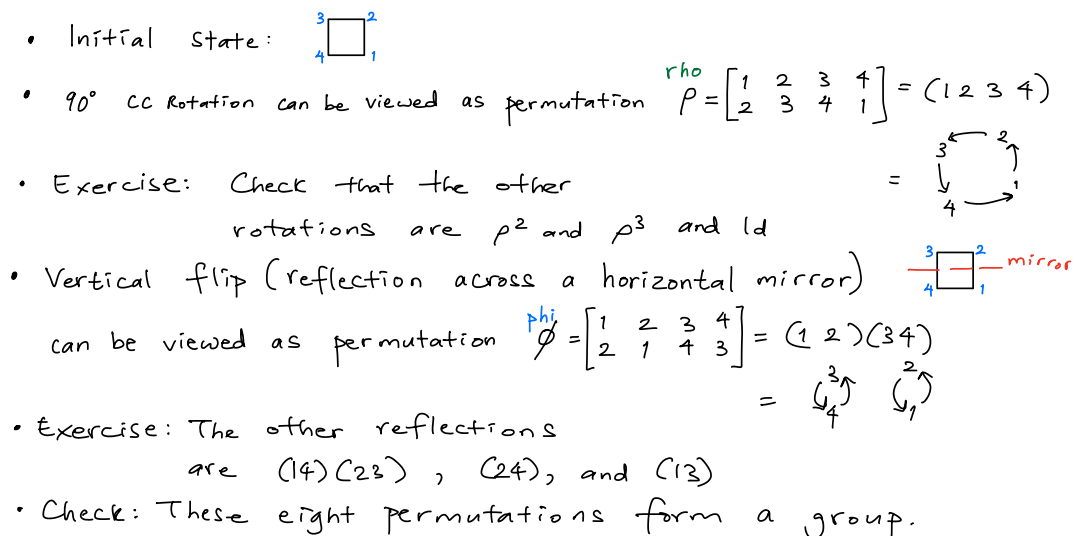 3 2
• Initial state:
4 1
rho
• 90° CC Rotation can be viewed as permutation ρ = [1 2 3 4 / 2 3 4 1] = (1 2 3 4)
3 2
• Exercise: Check that the other =
4 1
rotations are ρ² and ρ³ and Id
3 2
• Vertical flip (reflection across a horizontal mirror) mirror
4 1
phi
can be viewed as permutation ϕ = [1 2 3 4 / 2 1 4 3] = (1 2)(34)
= 3 4 2 1
• Exercise: The other reflections
are (14)(23), (24), and (13)
• Check: These eight permutations form a group.